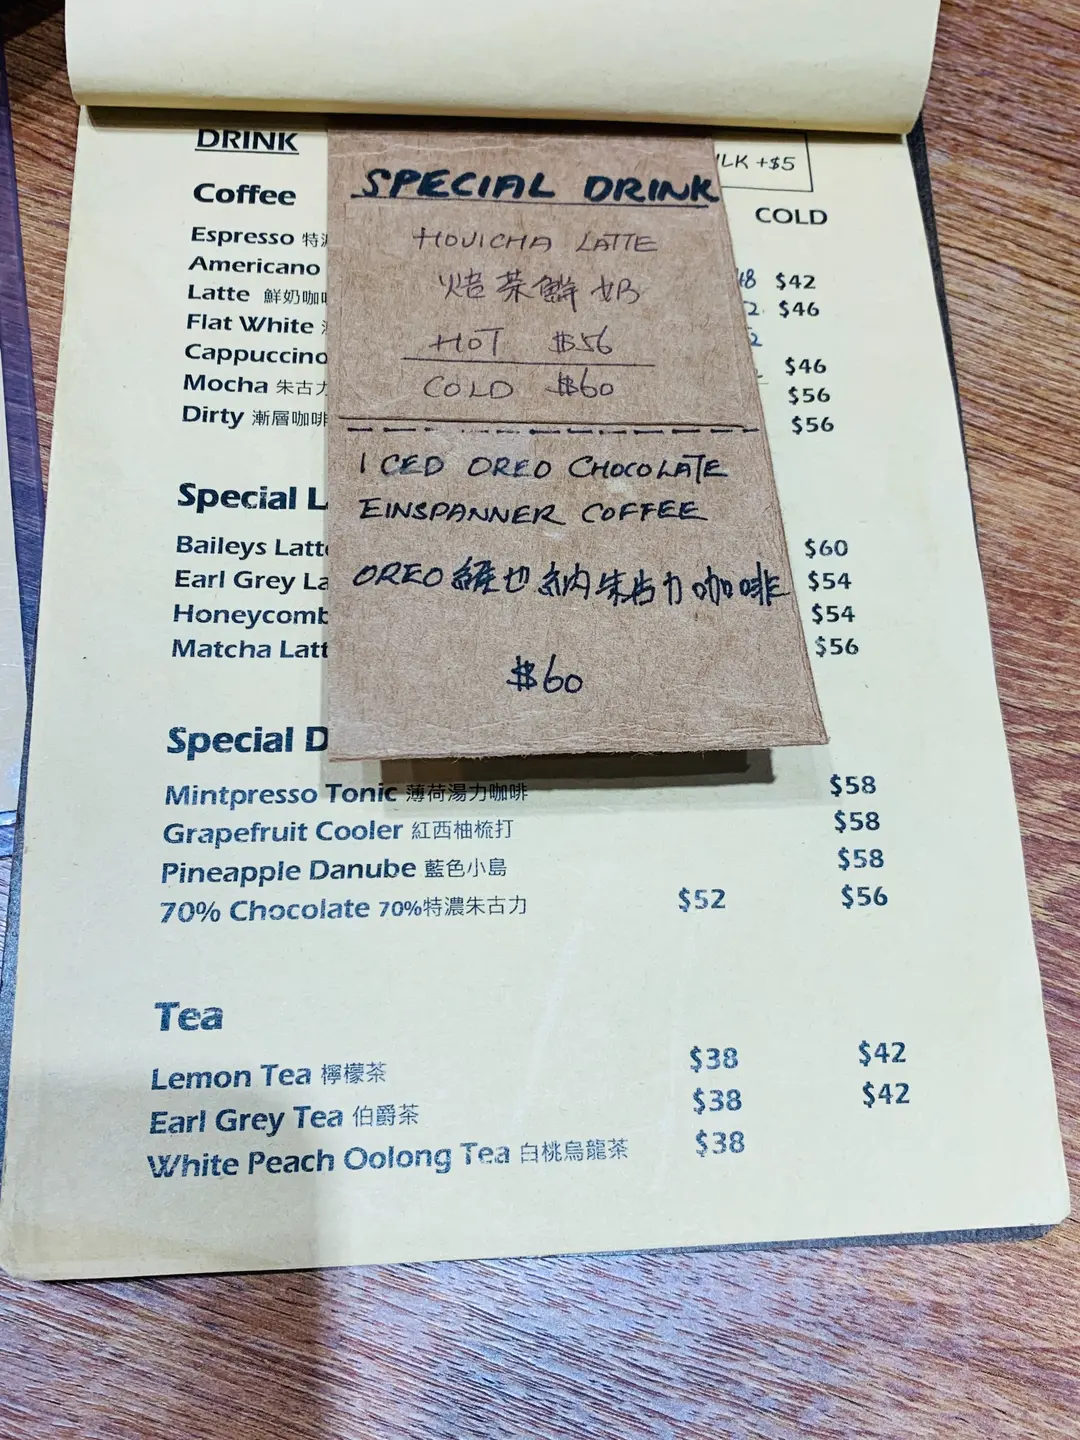 DRINK
Coffee
Espresso 特濃
Americano
Latte 鮮奶咖
Flat White
Cappuccino
Mocha 朱古力
Dirty 漸層咖啡
+$5
COLD
$42
$46
$46
$56
$56
SPECIAL DRINK
HOUICHA LATTE
焙茶鮮奶
HOT $56
COLD $60
ICED OREO CHOCOLATE
EINSPANNER COFFEE
OREO維也納朱古力咖啡
$60
Special
Baileys Latte $60
Earl Grey $54
Honeycomb $54
Matcha Latt $56
Special D
Mintpresso Tonic 薄荷湯力咖啡 $58
Grapefruit Cooler 紅西柚梳打 $58
Pineapple Danube 藍色小島 $58
70% Chocolate 70%特濃朱古力 $52 $56
Tea
Lemon Tea 檸檬茶 $38 $42
Earl Grey Tea 伯爵茶 $38 $42
White Peach Oolong Tea 白桃烏龍茶 $38